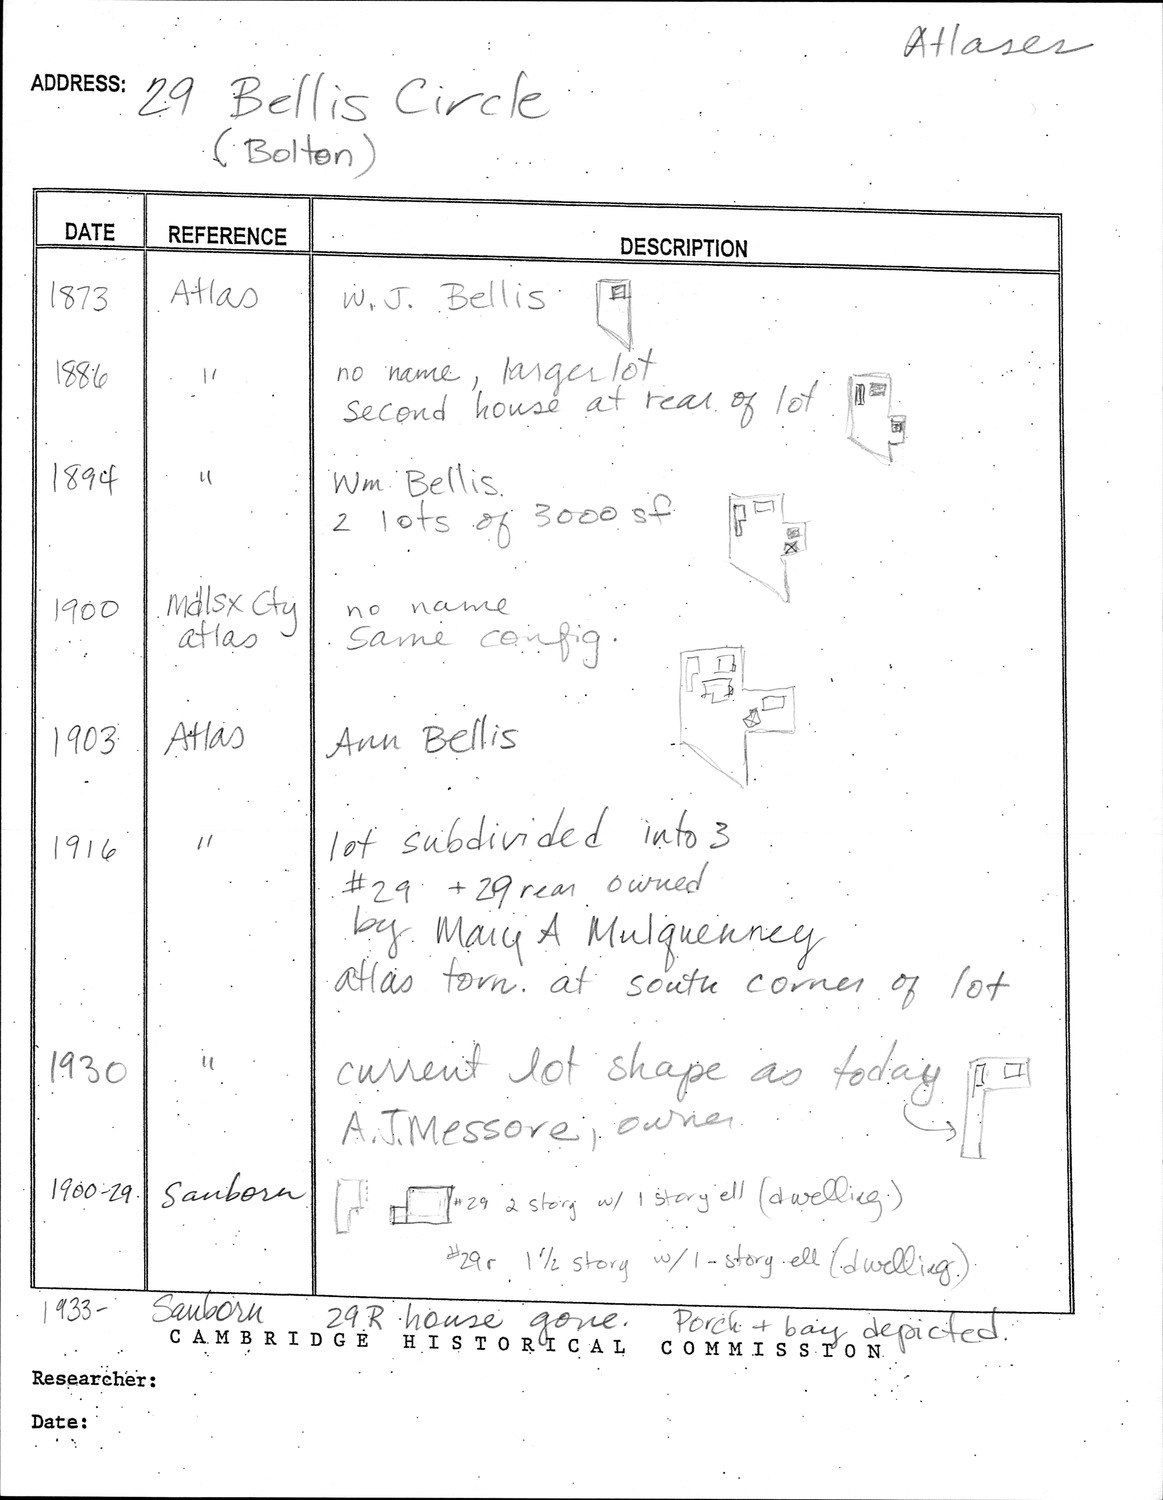 Atlases
ADDRESS: 29 Bellis Circle
(Bolton)
DATE REFERENCE DESCRIPTION
1873 Atlas W. J. Bellis
1886 " no name, larger lot
second house at rear of lot
1894 " Wm Bellis.
2 lots of 3000 sf
1900 Mdlsx Cty atlas no name
same config.
1903 Atlas Ann Bellis
1916 " lot subdivided into 3
#29 + 29 rear owned
by Mary A Mulquenney
atlas torn at south corner of lot
1930 " current lot shape as today
A.J. Messore, owner
1900-29 Sanborn #29 2 story w/ 1 story ell (dwelling)
#29r 1 1/2 story w/ 1-story ell (dwelling)
1933- Sanborn 29R house gone. Porch + bay depicted.
CAMBRIDGE HISTORICAL COMMISSION
Researcher:
Date: